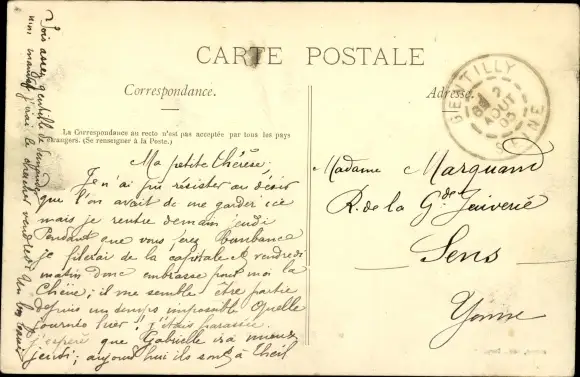 CARTE POSTALE
Correspondance.
Adresse.
La Correspondance au recto n'est pas acceptée par tous les pays
étrangers. (Se renseigner à la Poste.)
GENTILLY
2
AOUT
SEINE
Ma petite Thérèse,
Je n'ai pu résister au désir
que l'on avait de me garder ici
mais je rentre demain jeudi
Pendant que vous ferez
je filerai de la capitale et vendredi
matin donc embrasse pour moi la
; il me semble être partie
depuis un temps impossible Quelle
journée hier ! j'étais
j'espère que Gabrielle ira mieux
jeudi ; aujourd'hui ils sont à Theil
Sois assez gentille de demander
Madame Marquand
R. de la Gde Juiverie
Sens
Yonne